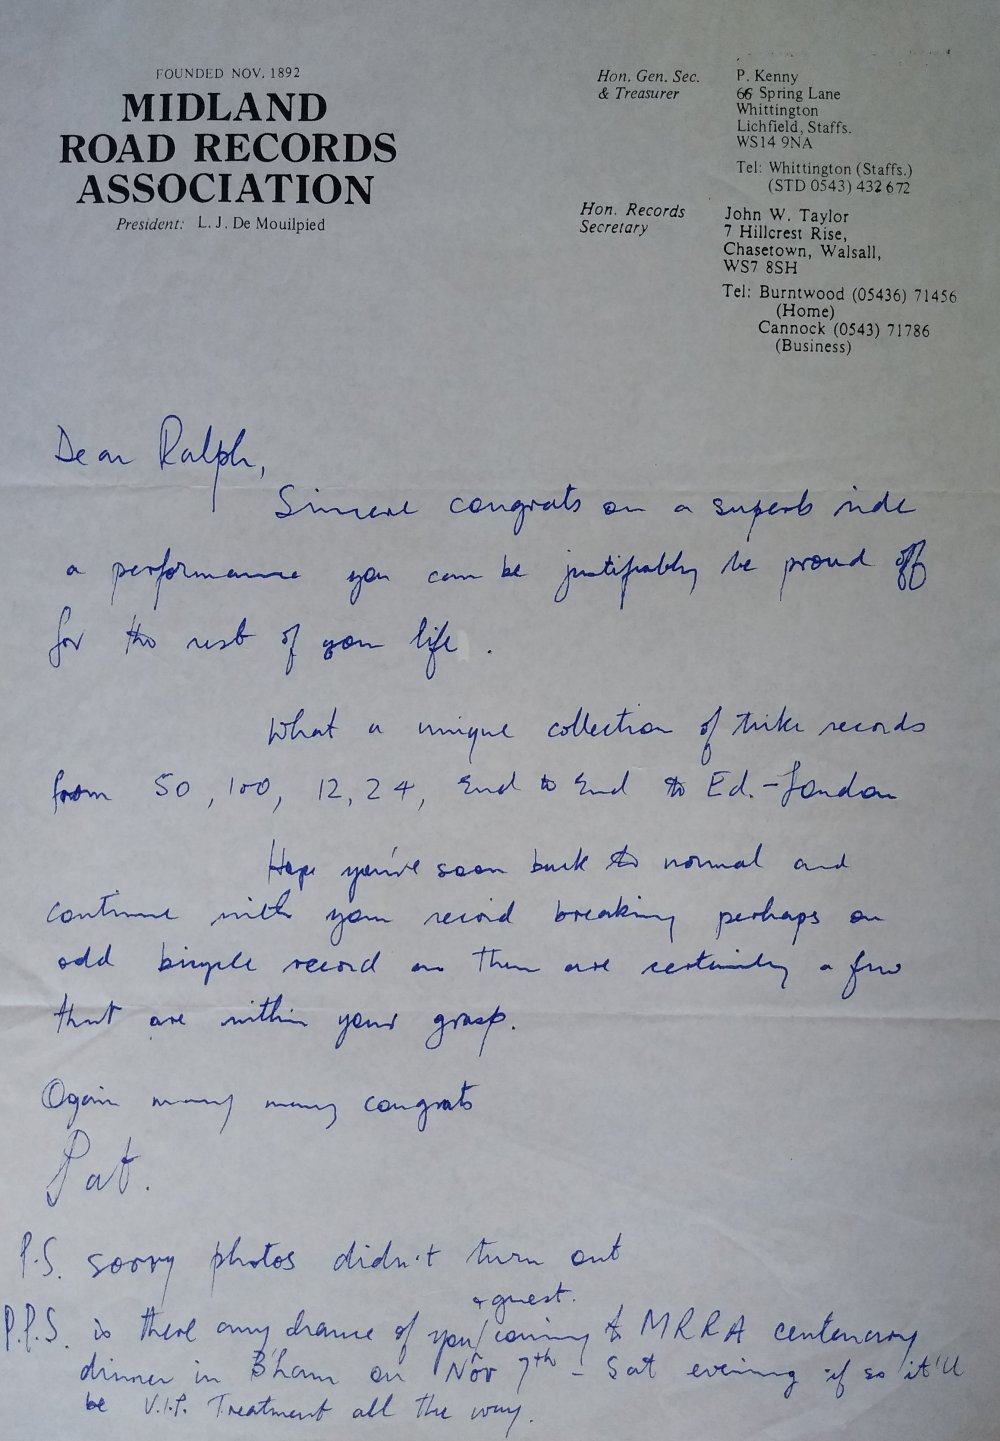 FOUNDED NOV. 1892
MIDLAND
ROAD RECORDS
ASSOCIATION
President: L. J. De Mouilpied
Hon. Gen. Sec.
& Treasurer
P. Kenny
66 Spring Lane
Whittington
Lichfield, Staffs.
WS14 9NA
Tel: Whittington (Staffs.)
(STD 0543) 432672
Hon. Records
Secretary
John W. Taylor
7 Hillcrest Rise,
Chasetown, Walsall,
WS7 8SH
Tel: Burntwood (05436) 71456
(Home)
Cannock (0543) 71786
(Business)
Dear Ralph,
Sincere congrats on a superb ride
a performance you can be justifiably be proud off
for the rest of your life.
What a unique collection of trike records
from 50, 100, 12, 24, End to End to Ed.-London
Hope you're soon back to normal and
continue with your record breaking perhaps an
odd bicycle record as there are certainly a few
that are within your grasp.
Again many many congrats
Pat.
P.S. sorry photos didn't turn out
+ guest.
P.P.S. is there any chance of you/coming to MRRA centenary
dinner in B'ham on Nov 7th - Sat evening if so it'll
be V.I.P. Treatment all the way.